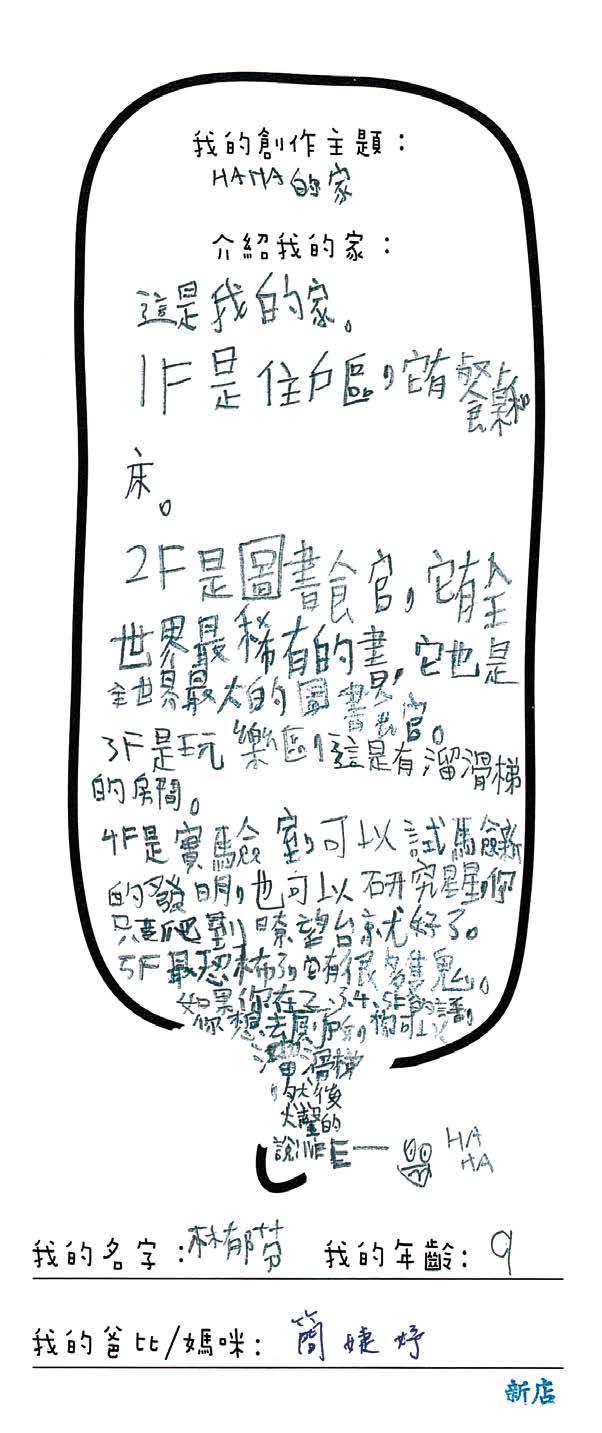 我的創作主題：
HAHA的家
介紹我的家：
這是我的家。
1F是住戶區，它有餐桌和
床。
2F是圖書館，它有全
世界最稀有的書，它也是
全世界最大的圖書館。
3F是玩樂區，這是有溜滑梯
的房間。
4F是實驗室，可以試驗新
的發明，也可以研究星星，你
只要爬到瞭望台就好了。
5F最恐怖了，它有很多隻鬼。
如果你在2、3、4、5F的話，
你想去廁所，你可以
溜滑梯
，然後
大聲的
說
HA
HA
我的名字：林郁芬 我的年齡：9
我的爸比/媽咪：簡婕妤
新店